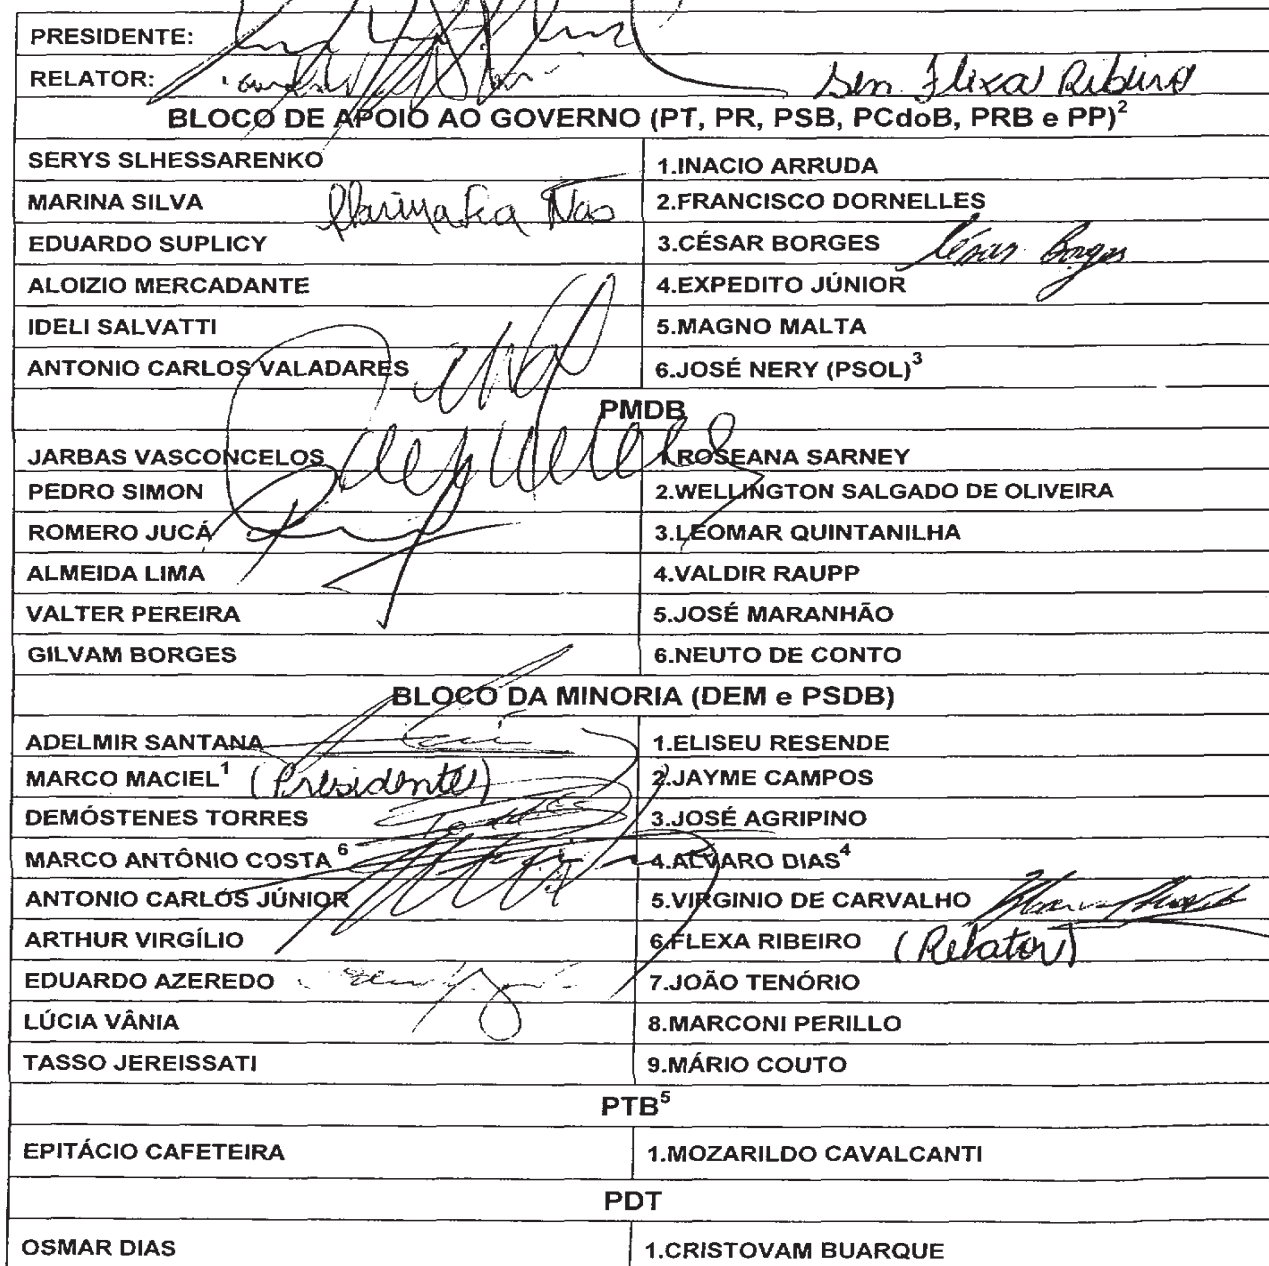 PRESIDENTE:
RELATOR: Sen. Flexa Ribeiro
BLOCO DE APOIO AO GOVERNO (PT, PR, PSB, PCdoB, PRB e PP)²
SERYS SLHESSARENKO 1.INACIO ARRUDA
MARINA SILVA 2.FRANCISCO DORNELLES
EDUARDO SUPLICY 3.CÉSAR BORGES César Borges
ALOIZIO MERCADANTE 4.EXPEDITO JÚNIOR
IDELI SALVATTI 5.MAGNO MALTA
ANTONIO CARLOS VALADARES 6.JOSÉ NERY (PSOL)³
PMDB
JARBAS VASCONCELOS 1.ROSEANA SARNEY
PEDRO SIMON 2.WELLINGTON SALGADO DE OLIVEIRA
ROMERO JUCÁ 3.LEOMAR QUINTANILHA
ALMEIDA LIMA 4.VALDIR RAUPP
VALTER PEREIRA 5.JOSÉ MARANHÃO
GILVAM BORGES 6.NEUTO DE CONTO
BLOCO DA MINORIA (DEM e PSDB)
ADELMIR SANTANA 1.ELISEU RESENDE
MARCO MACIEL¹ (Presidente) 2.JAYME CAMPOS
DEMÓSTENES TORRES 3.JOSÉ AGRIPINO
MARCO ANTÔNIO COSTA⁶ 4.ALVARO DIAS⁴
ANTONIO CARLOS JÚNIOR 5.VIRGINIO DE CARVALHO
ARTHUR VIRGÍLIO 6.FLEXA RIBEIRO (Relator)
EDUARDO AZEREDO 7.JOÃO TENÓRIO
LÚCIA VÂNIA 8.MARCONI PERILLO
TASSO JEREISSATI 9.MÁRIO COUTO
PTB⁵
EPITÁCIO CAFETEIRA 1.MOZARILDO CAVALCANTI
PDT
OSMAR DIAS 1.CRISTOVAM BUARQUE